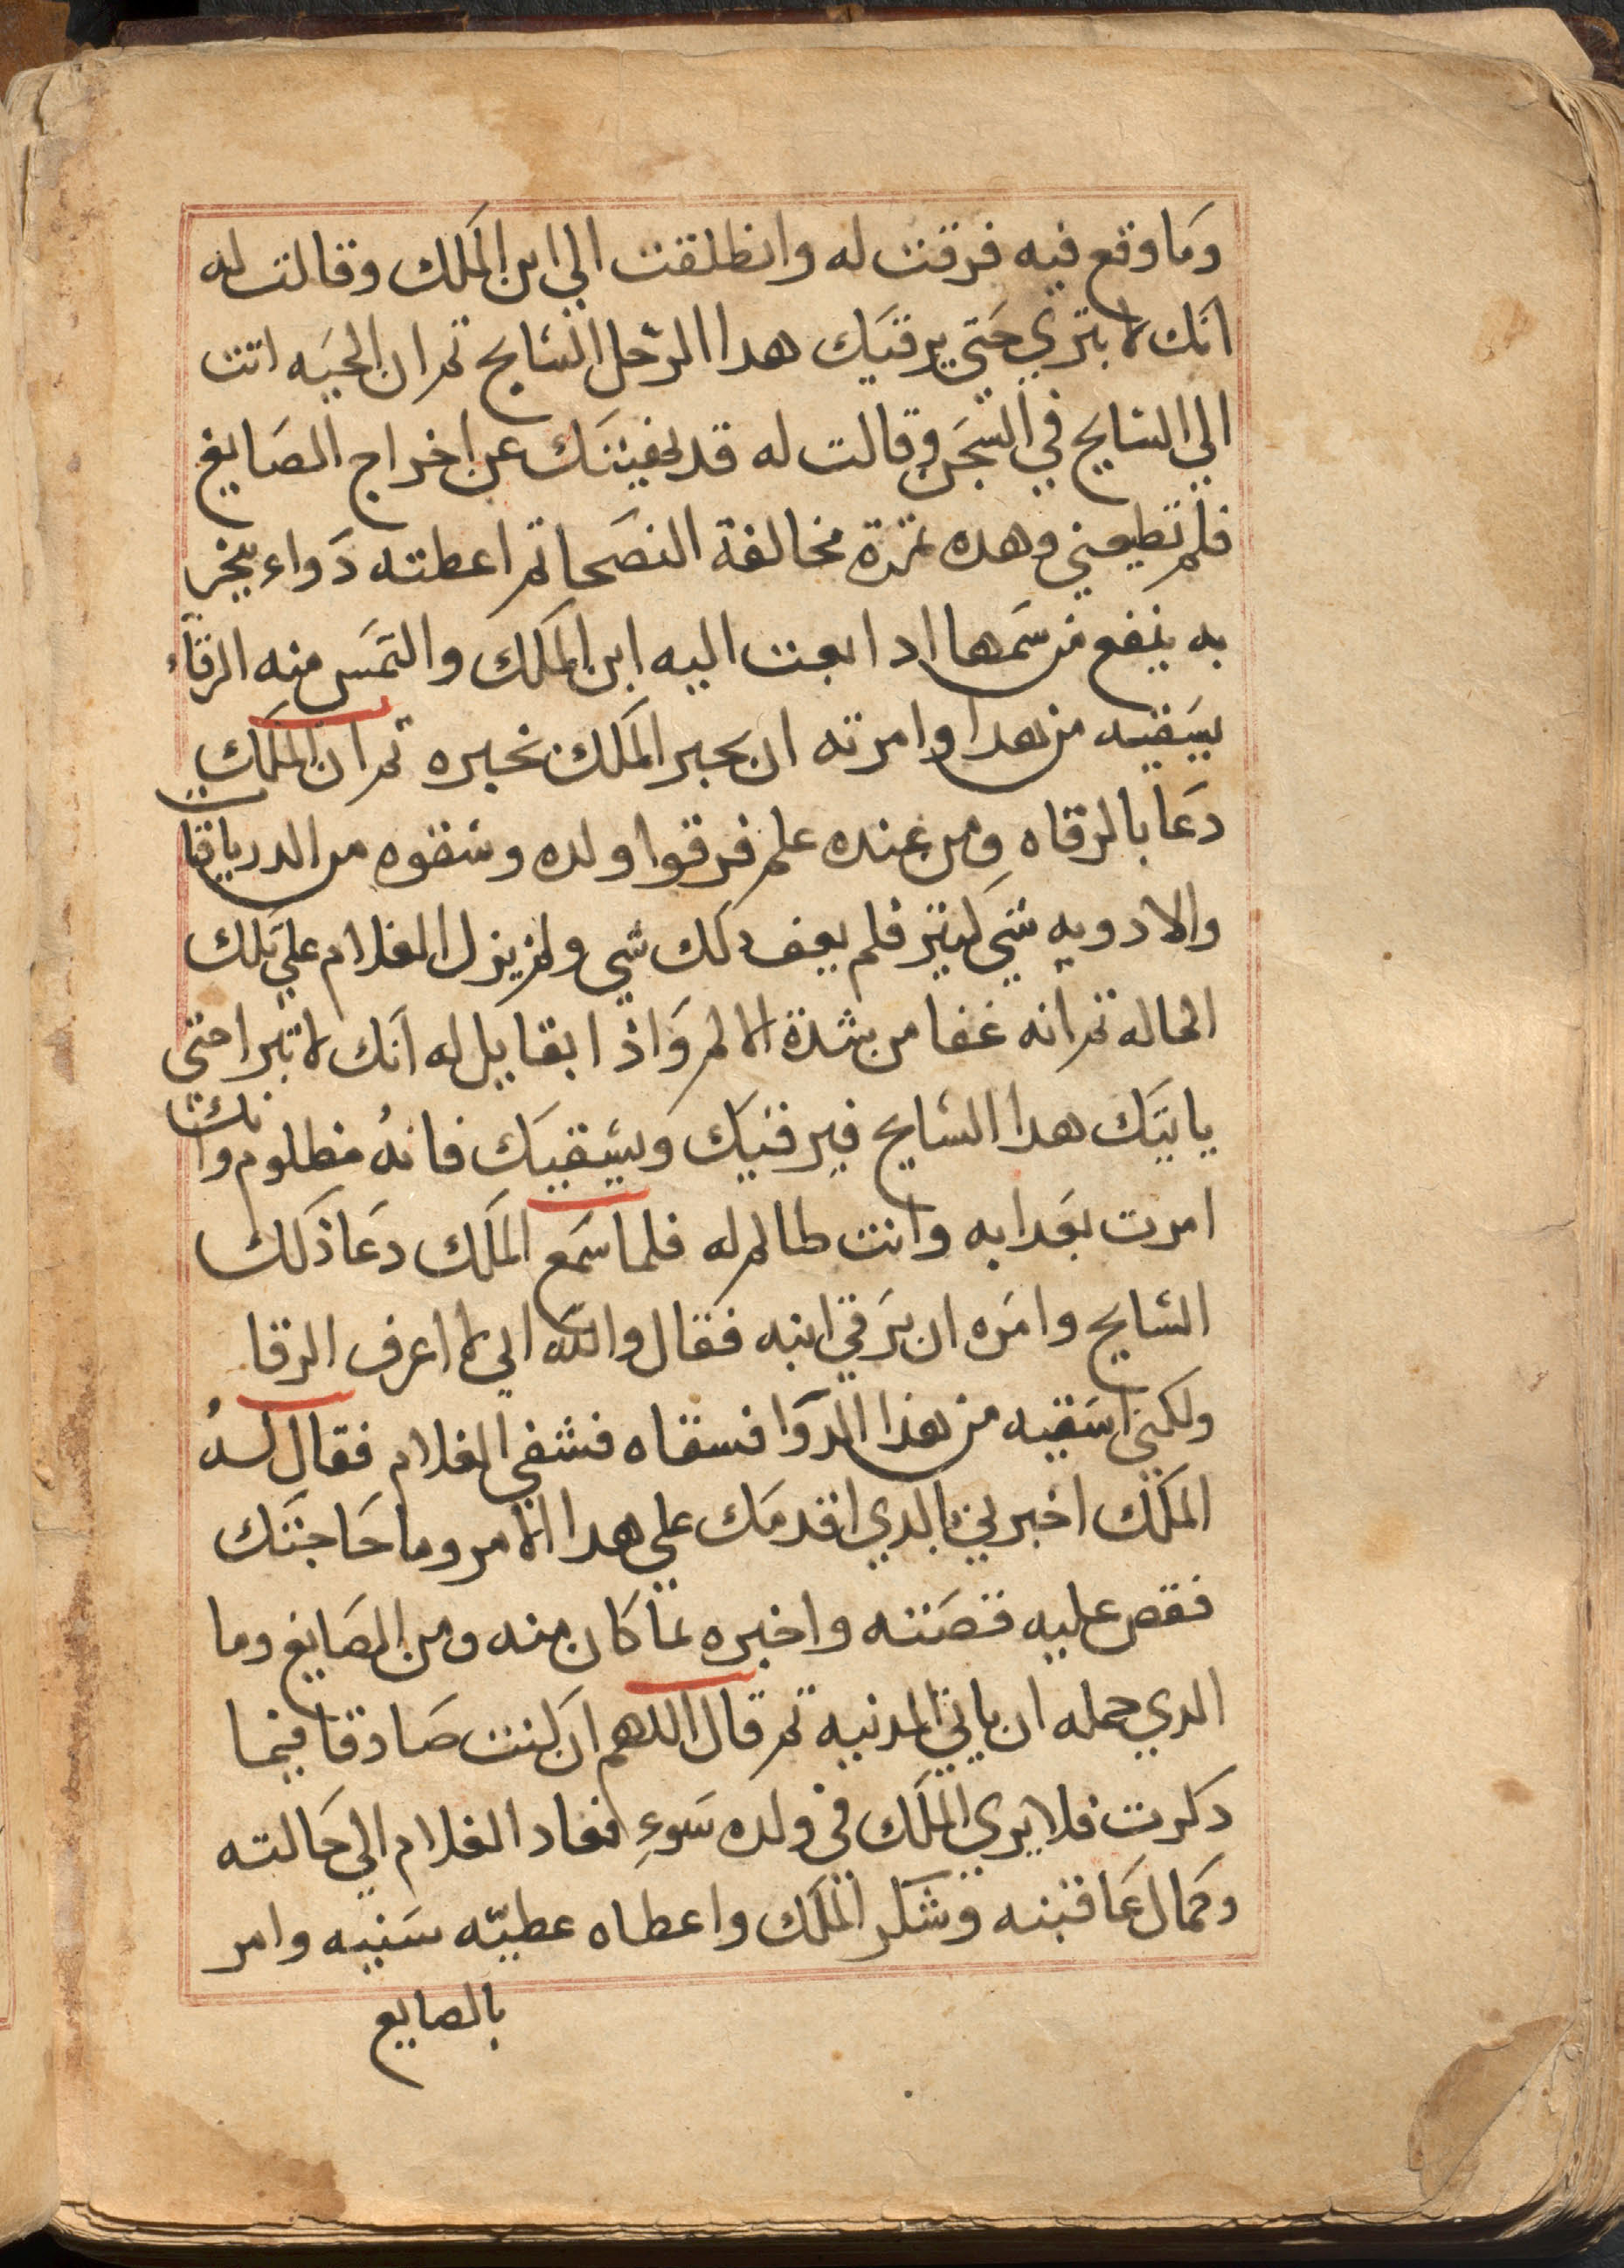 وما وقع فيه فرقت له وانطلقت الي ابن الملك وقالت له
انك لا بتري حتي يرقيك هدا الرجل السايح ثم ان الحيه اتت
الي السايح في السجن وقالت له قد نهيتك عن اخراج الصايغ
فلم تطيعني وهده ثمرة مخالفة النصحا ثم اعطته دواء يخر
به ينفع من سمها ادا بعت اليه ابن الملك والتمس منه الرقاء
يسقيه من هدا وامرته ان يحبر الملك بخبره ثم ان الملك
دعا بالرقاه ومن عنده علم فرقوا ولده وسقوه من الدرياقات
والادويه شي كتير فلم يعف دلك شي ولم يزل الغلام علي تلك
الحاله ثم انه غفا من شدة الالم واذا بقايل له انك لا تبرا حتى
ياتيك هدا السايح فيرقيك ويسقيك فانه مظلوم وانك
امرت بعدابه وانت طالم له فلما سمع الملك دعا ذلك
السايح وامره ان يرقي ابنه فقال والله اني لا اعرف الرقا
ولكني اسقيه من هذا الدوا فسقاه فشفي الغلام فقال له
الملك اخبرني بالدي اقدمك علي هدا الامر وما حاجتك
فقص عليه قصته واخبره بما كان منه ومن الصايغ وما
الدي حمله ان ياتي المدنيه ثم قال اللهم ان كنت صادقا فيما
دكرت فلا يري الملك في ولده سوءٍ فعاد الغلام الي حالته
وكمال عافبته وشكر الملك واعطاه عطيّه سنيه وامر
بالصايع